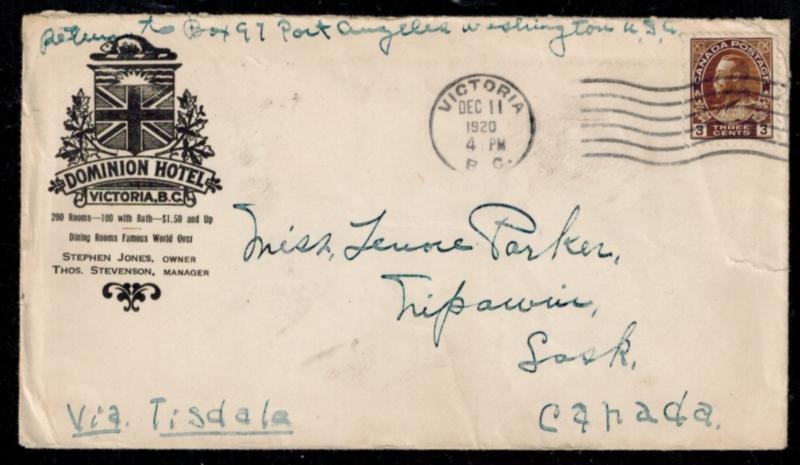 Return to Box 97 Port Angeles Washington U.S.A.
DOMINION HOTEL
VICTORIA, B.C.
200 Rooms—100 with Bath—$1.50 and Up
Dining Rooms Famous World Over
STEPHEN JONES, OWNER
THOS. STEVENSON, MANAGER
VICTORIA
DEC 11
1920
4 PM
B.C.
CANADA POSTAGE
3 THREE CENTS 3
Miss. Lenore Parker,
Nipawin,
Sask,
Canada.
Via. Tisdale